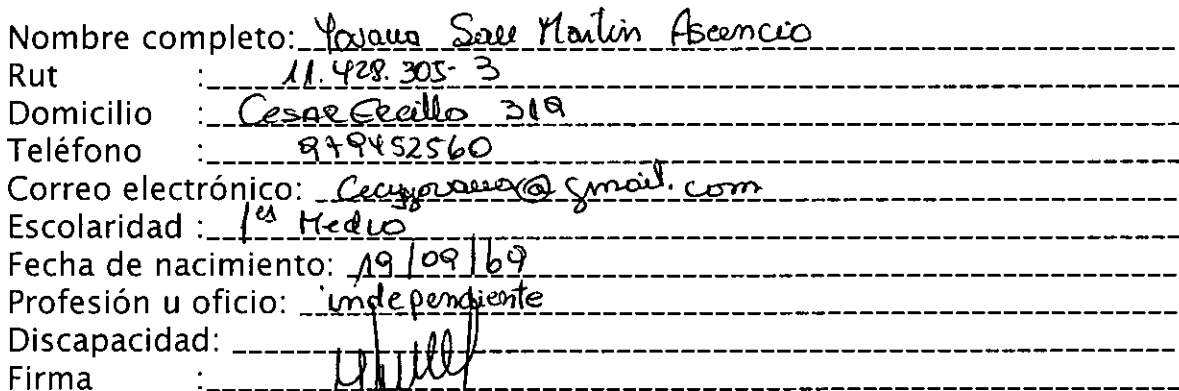 Nombre completo: Yovana San Martin Ascencio
Rut : 11.428.305-3
Domicilio : Cesar Ercillo 319
Teléfono : 979452560
Correo electrónico: Cecyyovana@gmail.com
Escolaridad : 1es Medio
Fecha de nacimiento: 19/09/69
Profesión u oficio: independiente
Discapacidad:
Firma :